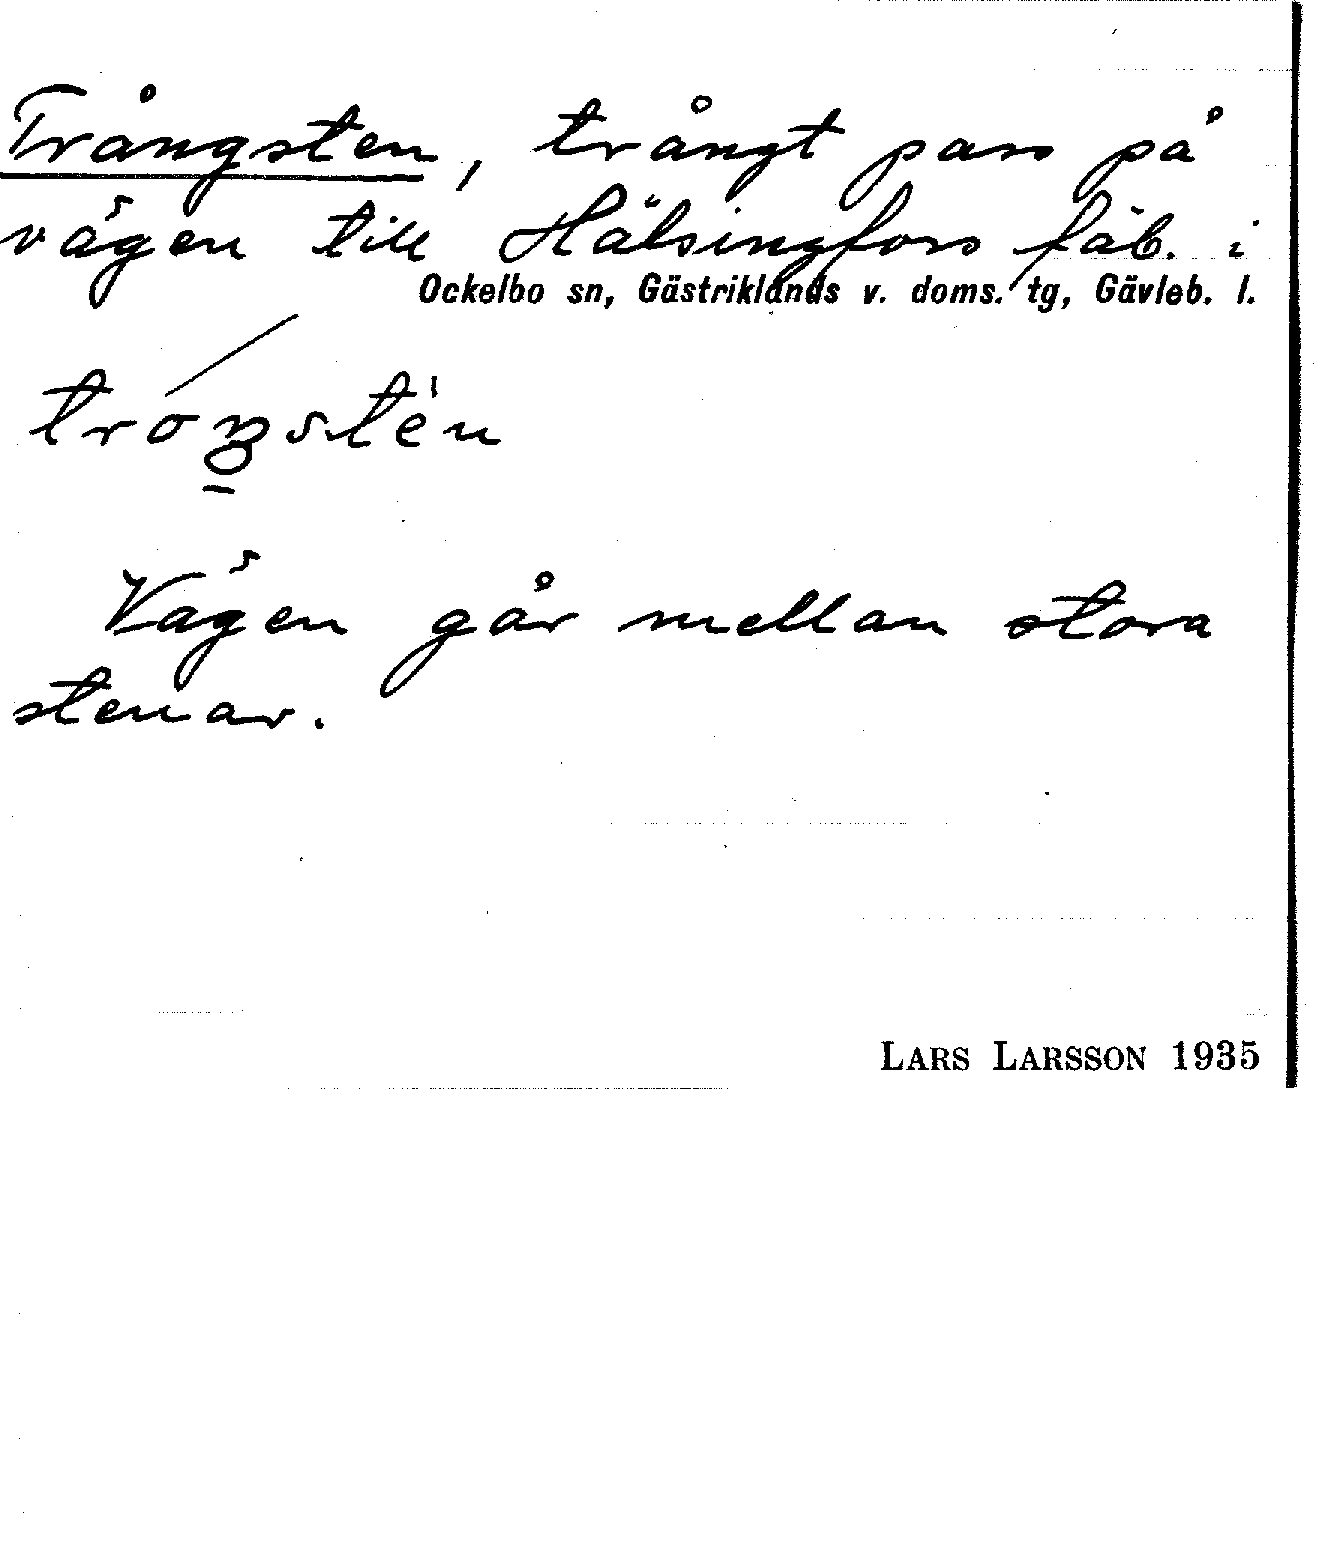 Trångsten, trångt pass på
vägen till Hälsingfors fäb. i
Ockelbo sn, Gästriklands v. doms. tg, Gävleb. l.
tróŋstèn
Vägen går mellan stora
stenar.
LARS LARSSON 1935